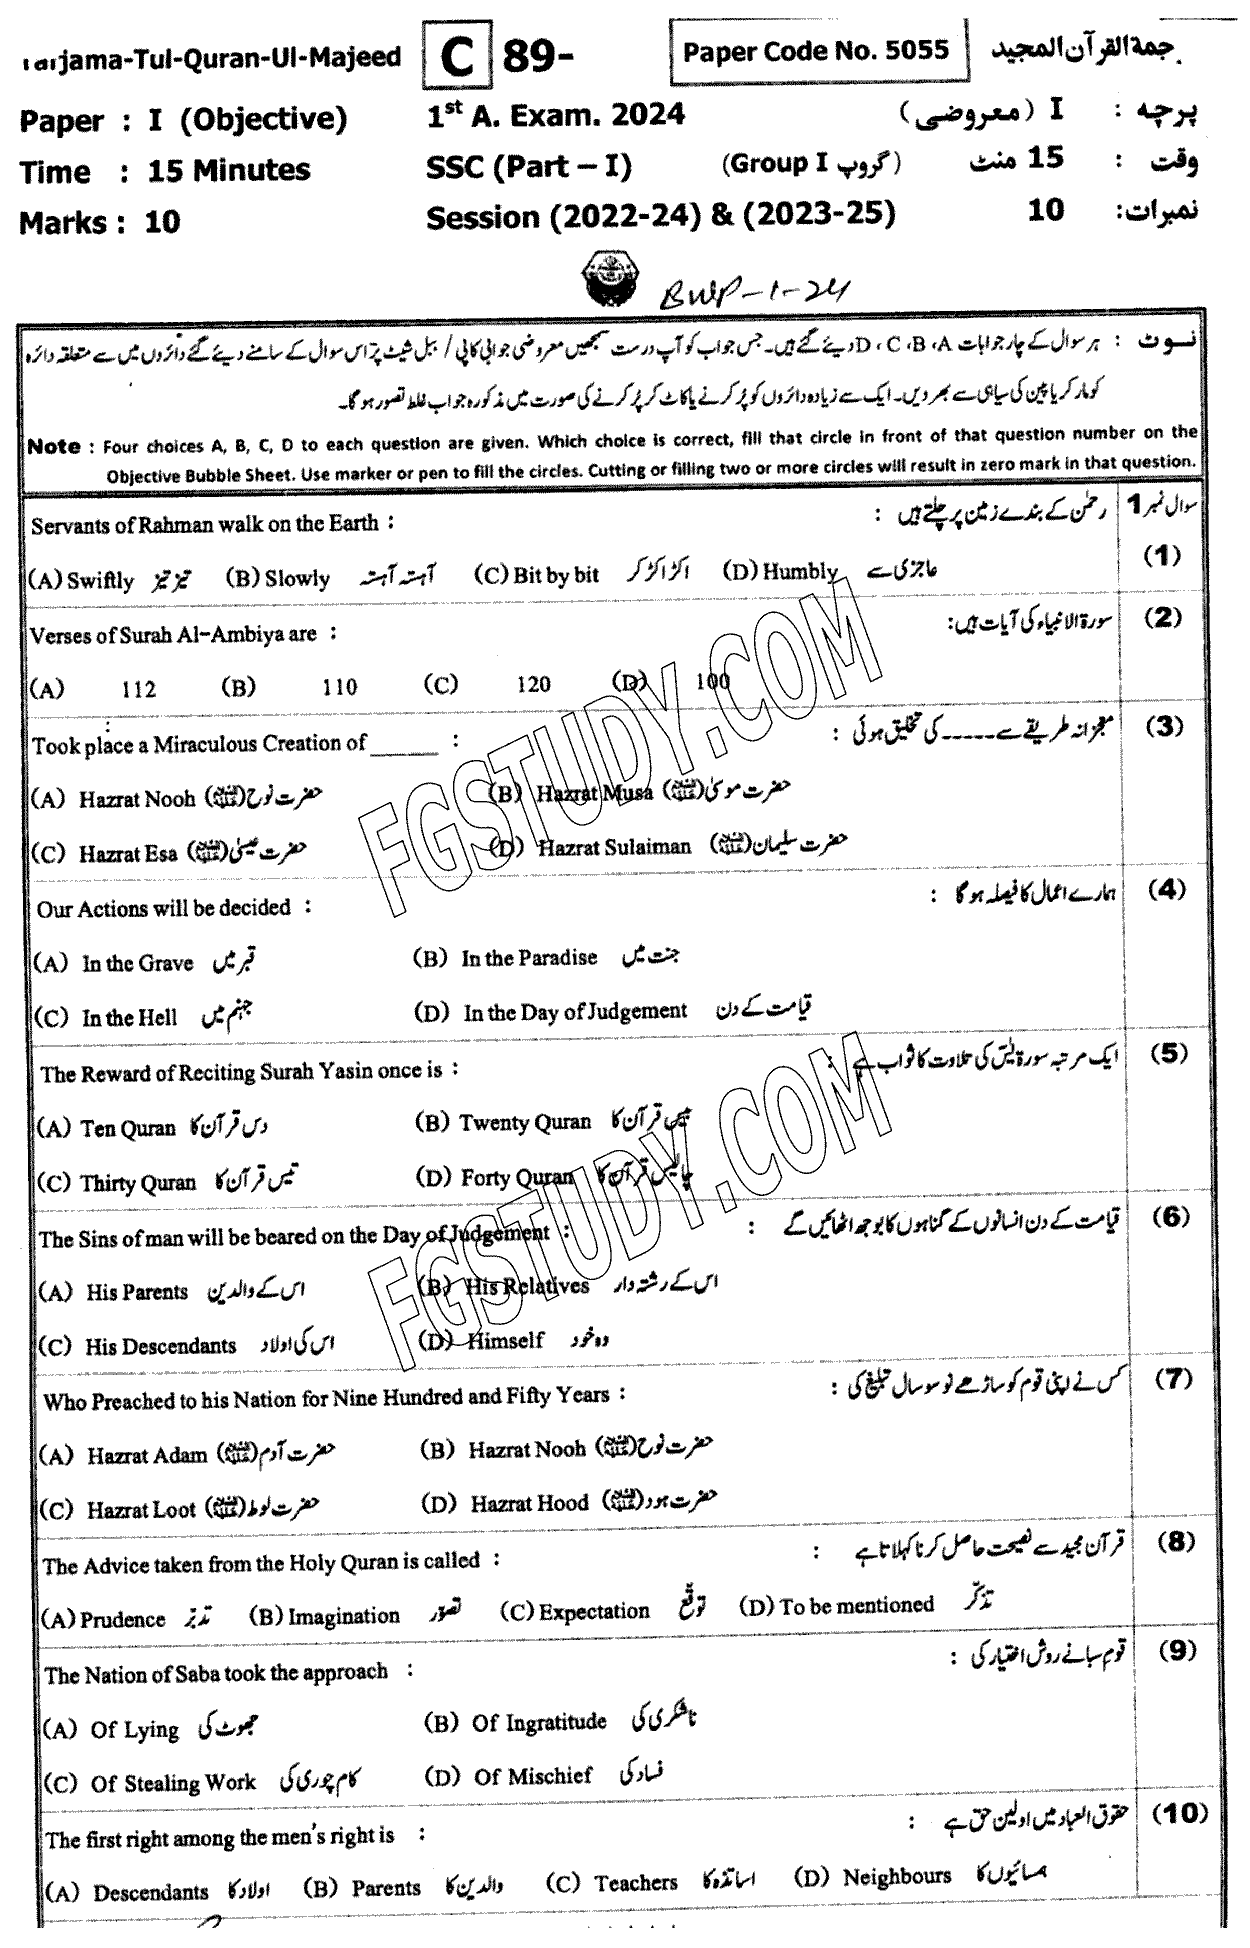 Tarjama-Tul-Quran-Ul-Majeed C 89- Paper Code No. 5055 جمۃ القرآن المجید
Paper : I (Objective) 1st A. Exam. 2024 پرچہ : I (معروضی)
Time : 15 Minutes SSC (Part – I) (Group I گروپ) وقت : 15 منٹ
Marks : 10 Session (2022-24) & (2023-25) نمبرات: 10
BWP-1-24
نوٹ : ہر سوال کے چار جوابات D ، C ، B ، A دیئے گئے ہیں۔ جس جواب کو آپ درست سمجھیں معروضی جوابی کاپی / ببل شیٹ پر اس سوال کے سامنے دیئے گئے دائروں میں سے متعلقہ دائرہ
کو مارکر یا پین کی سیاہی سے بھر دیں۔ ایک سے زیادہ دائروں کو پُر کرنے یا کاٹ کر پُر کرنے کی صورت میں مذکورہ جواب غلط تصور ہوگا۔
Note : Four choices A, B, C, D to each question are given. Which choice is correct, fill that circle in front of that question number on the
Objective Bubble Sheet. Use marker or pen to fill the circles. Cutting or filling two or more circles will result in zero mark in that question.
Servants of Rahman walk on the Earth : رحمٰن کے بندے زمین پر چلتے ہیں : سوال نمبر 1
(A) Swiftly تیز تیز (B) Slowly آہستہ آہستہ (C) Bit by bit اکڑ اکڑ کر (D) Humbly عاجزی سے (1)
Verses of Surah Al-Ambiya are : سورۃ الانبیاء کی آیات ہیں: (2)
(A) 112 (B) 110 (C) 120 (D) 100
Took place a Miraculous Creation of _____ : معجزانہ طریقے سے ----- کی تخلیق ہوئی : (3)
(A) Hazrat Nooh حضرت نوح (علیہ السلام) (B) Hazrat Musa حضرت موسیٰ (علیہ السلام)
(C) Hazrat Esa حضرت عیسیٰ (علیہ السلام) (D) Hazrat Sulaiman حضرت سلیمان (علیہ السلام)
Our Actions will be decided : ہمارے اعمال کا فیصلہ ہو گا : (4)
(A) In the Grave قبر میں (B) In the Paradise جنت میں
(C) In the Hell جہنم میں (D) In the Day of Judgement قیامت کے دن
The Reward of Reciting Surah Yasin once is : ایک مرتبہ سورۃ یٰس کی تلاوت کا ثواب ہے : (5)
(A) Ten Quran دس قرآن کا (B) Twenty Quran بیس قرآن کا
(C) Thirty Quran تیس قرآن کا (D) Forty Quran چالیس قرآن کا
The Sins of man will be beared on the Day of Judgement : قیامت کے دن انسانوں کے گناہوں کا بوجھ اٹھائیں گے : (6)
(A) His Parents اس کے والدین (B) His Relatives اس کے رشتہ دار
(C) His Descendants اس کی اولاد (D) Himself وہ خود
Who Preached to his Nation for Nine Hundred and Fifty Years : کس نے اپنی قوم کو ساڑھے نو سو سال تبلیغ کی : (7)
(A) Hazrat Adam حضرت آدم (علیہ السلام) (B) Hazrat Nooh حضرت نوح (علیہ السلام)
(C) Hazrat Loot حضرت لوط (علیہ السلام) (D) Hazrat Hood حضرت ہود (علیہ السلام)
The Advice taken from the Holy Quran is called : قرآن مجید سے نصیحت حاصل کرنا کہلاتا ہے : (8)
(A) Prudence تدبّر (B) Imagination تصوّر (C) Expectation توقّع (D) To be mentioned تذکّر
The Nation of Saba took the approach : قوم سبا نے روش اختیار کی : (9)
(A) Of Lying جھوٹ کی (B) Of Ingratitude ناشکری کی
(C) Of Stealing Work کام چوری کی (D) Of Mischief فساد کی
The first right among the men's right is : حقوق العباد میں اولین حق ہے : (10)
(A) Descendants اولاد کا (B) Parents والدین کا (C) Teachers اساتذہ کا (D) Neighbours ہمسائیوں کا
FGSTUDY.COM
FGSTUDY.COM